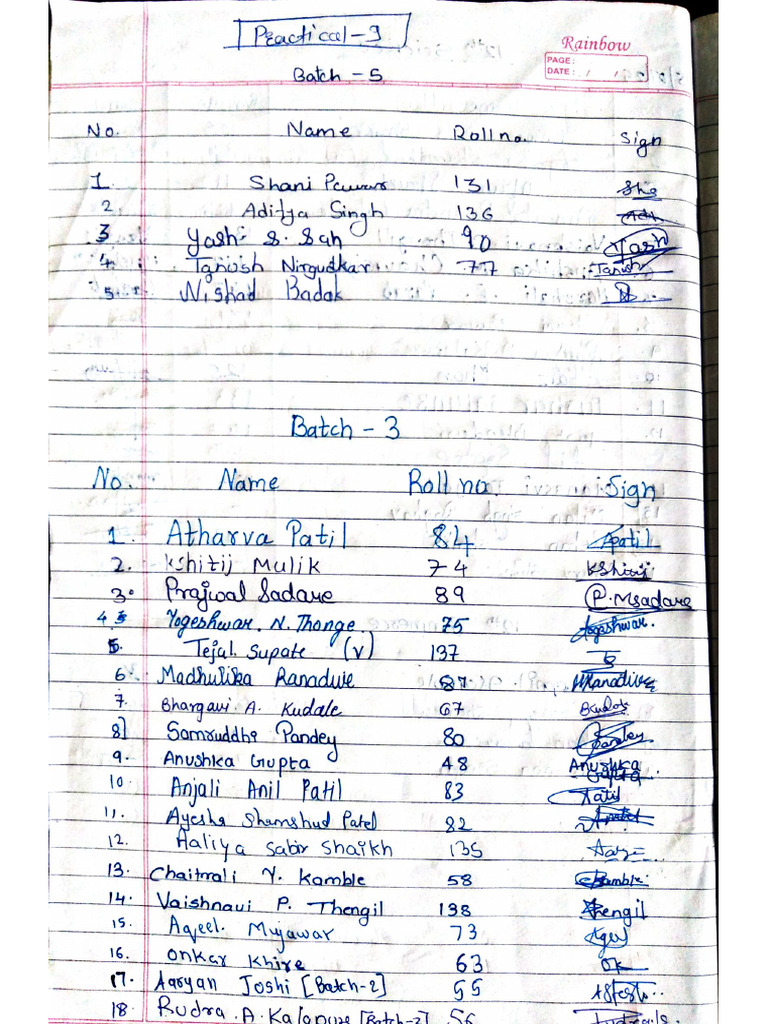 Practical - 9
Rainbow
PAGE:
DATE:
Batch - 5
No. Name Roll no. Sign
1. Shani Pawar 131
2. Aditya Singh 136
3 Yash S. Sah 90 Yash
4. Tanush Nirgudkar 77 Tanush
5. Nishad Badak
Batch - 3
No. Name Roll no. Sign
1. Atharva Patil 84 Apatil
2. Kshitij Mulik 74 Kshitij
3. Prajwal Sadare 89 P.Msadare
4 Yogeshwar. N. Thonge 75 Yogeshwar.
5. Tejal Supate (V) 137
6. Madhulika Ranadive 87 MRanadive
7. Bhargavi. A. Kudale 67
8] Samruddhi Pandey 80 Pandey
9. Anushka Gupta 48 Anushka Gupta
10. Anjali Anil Patil 83 Patil
11. Ayesha Shamshud Patel 82
12. Aaliya Sabir Shaikh 135
13. Chaitrali Y. Kamble 58 Kamble
14. Vaishnavi P. Thengil 138 Thengil
15. Aqeel. Mujawar 73
16. Onkar Khire 63 OK
17. Aaryan Joshi [Batch-2] 55
18. Rudra. A. Kalapure [Batch-2] 56